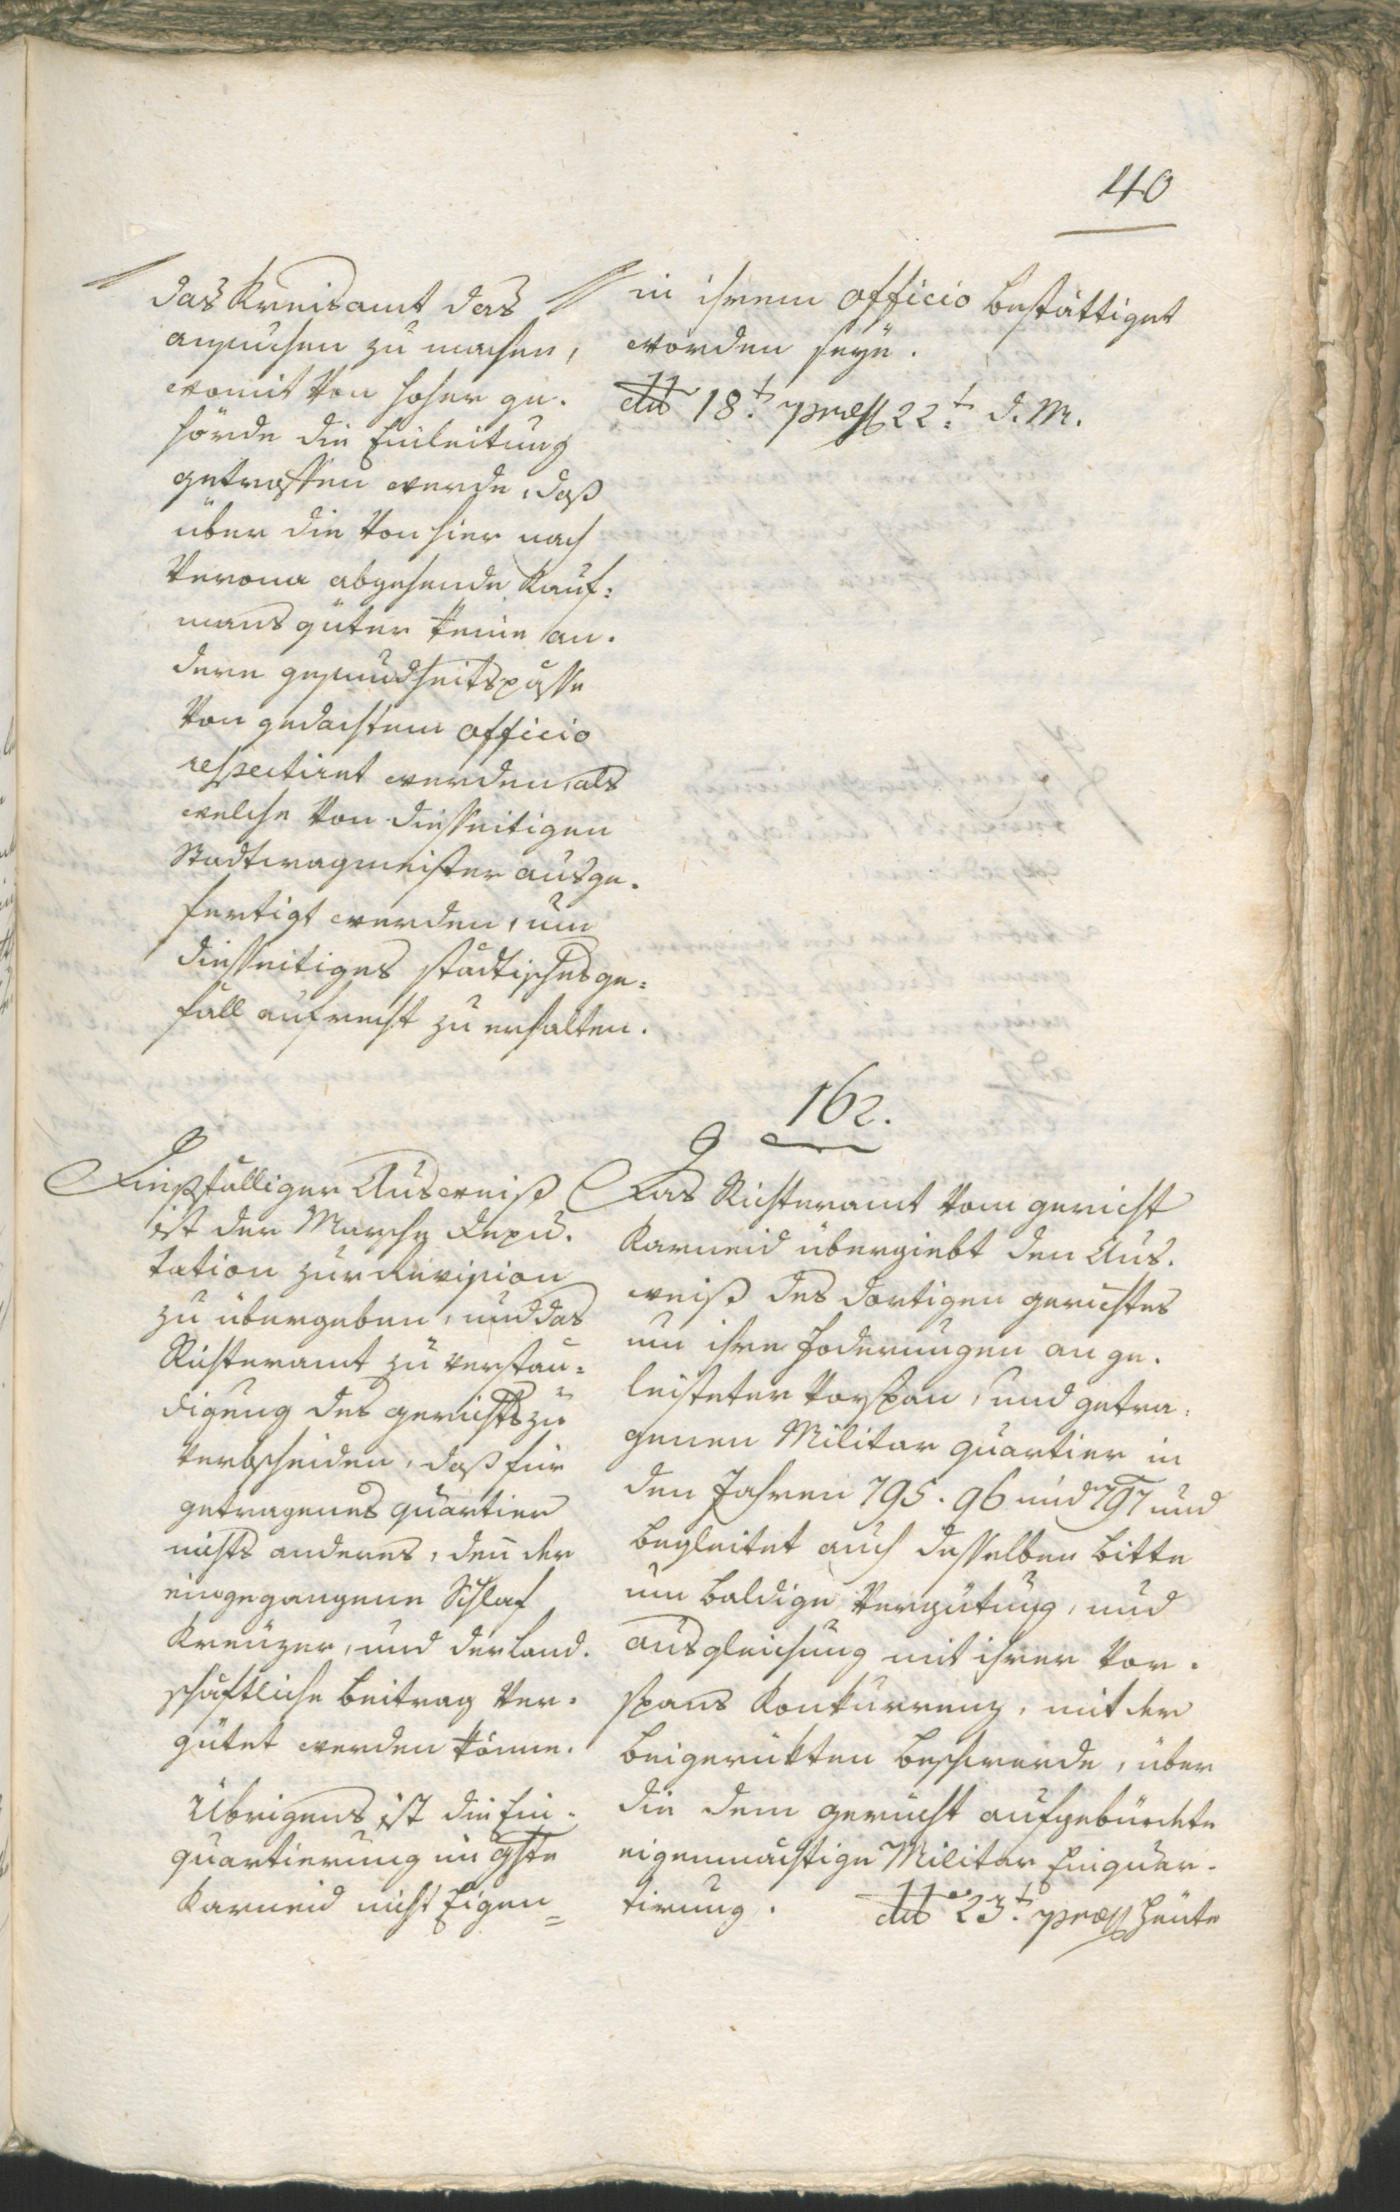 40
das Kreisamt das
ansuchen zu machen,
womit von hoher ge-
hörde die Einleitung
getroffen werde, daß
über die von hier nach
Verona abgehende Kauf=
mans güter keine an-
dere gesundheitspässe
von gedachtem officio
respectiret werden, als
welche von diesseitigen
Stadtwagmeister ausge-
fertigt werden, um
diesseitiges städtisches ge=
fäll aufrecht zu erhalten.
in ihrem officio bestättiget
worden seye.
dto 18t. præs 22t. d. M.
162.
Einfälliger Ausweiß
ist der Marche Depu-
tation zur Revision
zu übergeben, und das
Richteramt zu verstän=
digung des gerichts zu
verbscheiden, daß für
getragenes quartier
nichts anderes, den der
eingegangene Schlaf
Kreuzer, und der land-
schäftliche beitrag ver-
gütet werden könne.
Übrigens ist die Ein-
quartierung im Ghte
Karneid nicht Eigen=
Das Richteramt vom gericht
Karneid übergiebt den Aus-
weiß des dortigen gerichtes
um ihre foderungen an ge-
leisteter Vorspan, und getra-
genen Militar quartier in
den Jahren 795. 96 und 797 und
begleitet auch desselben bitte
um baldige Vergütung, und
ausgleichung mit ihrer Vor-
spans Konkurrenz, mit der
beigerükten beschwerde, über
die dem gericht aufgebürdete
eigenmächtige Militar Einquar-
tirung. dto 23t. præs heute